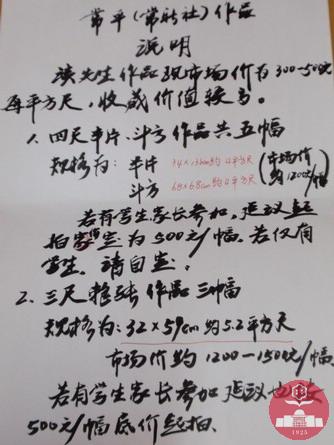 常平(常勝社)作品
说明
该先生作品现市场价为300-500元
每平方尺,收藏价值较高。
1、四天半片、斗方作品共五幅
规格为:半片 34×136cm约4平方尺(市场价
斗方 68×68cm约4平方尺 约1200元)
若有学生家长参加,建议起
拍定为500元/幅。若仅有
学生,请自定。
2、三尺整张作品三幅
规格为:32×59cm约5.2平方尺
市场价约1200-1500元/幅
若有学生家长参加建议也按
500元/幅底价起拍.
1925